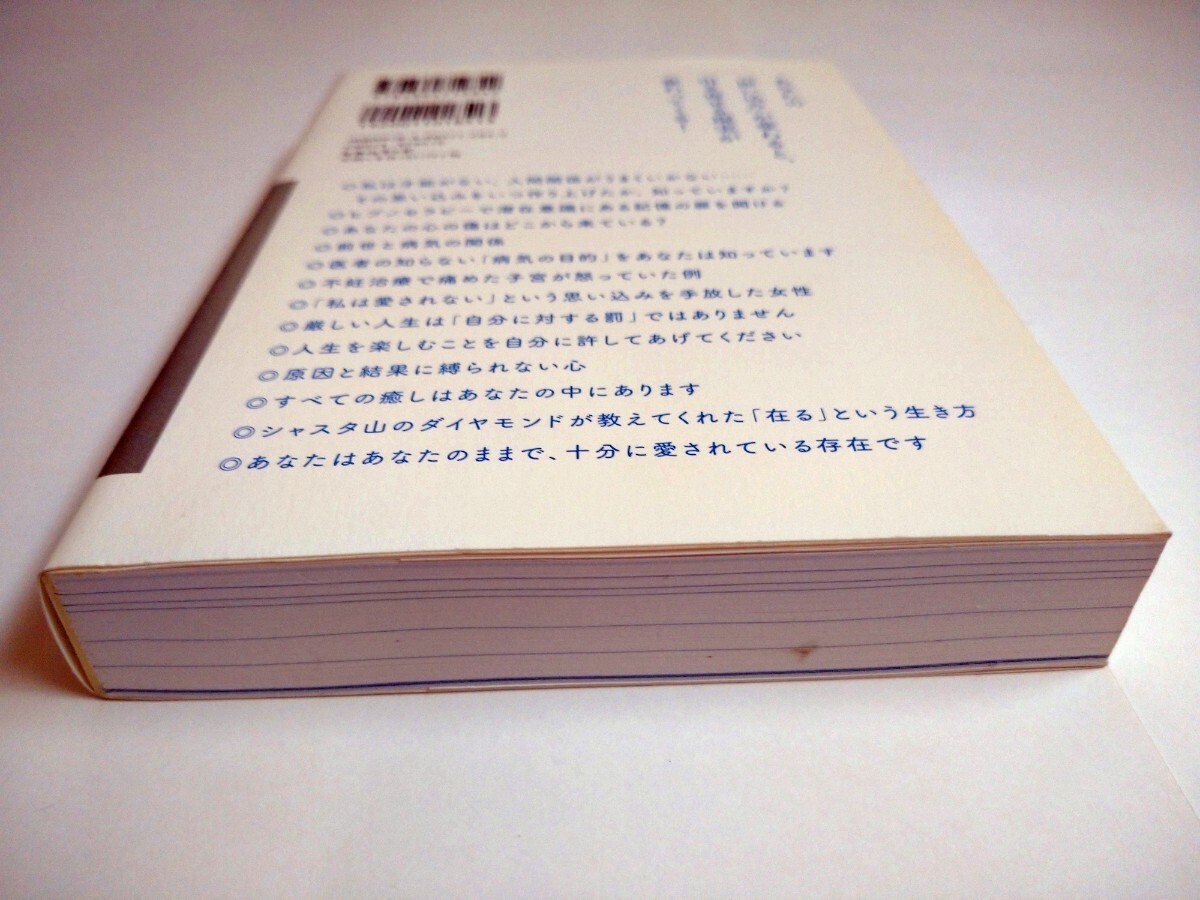 ◎私は才能がない、人間関係がうまくいかない……
その思い込みをいつ作り上げたか、知っていますか?
◎ヒプノセラピーで潜在意識にある記憶の扉を開ける
◎あなたの心の傷はどこから来ている?
◎前世と病気の関係
◎医者の知らない「病気の目的」をあなたは知っています
◎不妊治療で痛めた子宮が怒っていた例
◎「私は愛されない」という思い込みを手放した女性
◎厳しい人生は「自分に対する罰」ではありません
◎人生を楽しむことを自分に許してあげてください
◎原因と結果に縛られない心
◎すべての癒しはあなたの中にあります
◎シャスタ山のダイヤモンドが教えてくれた「在る」という生き方
◎あなたはあなたのままで、十分に愛されている存在です